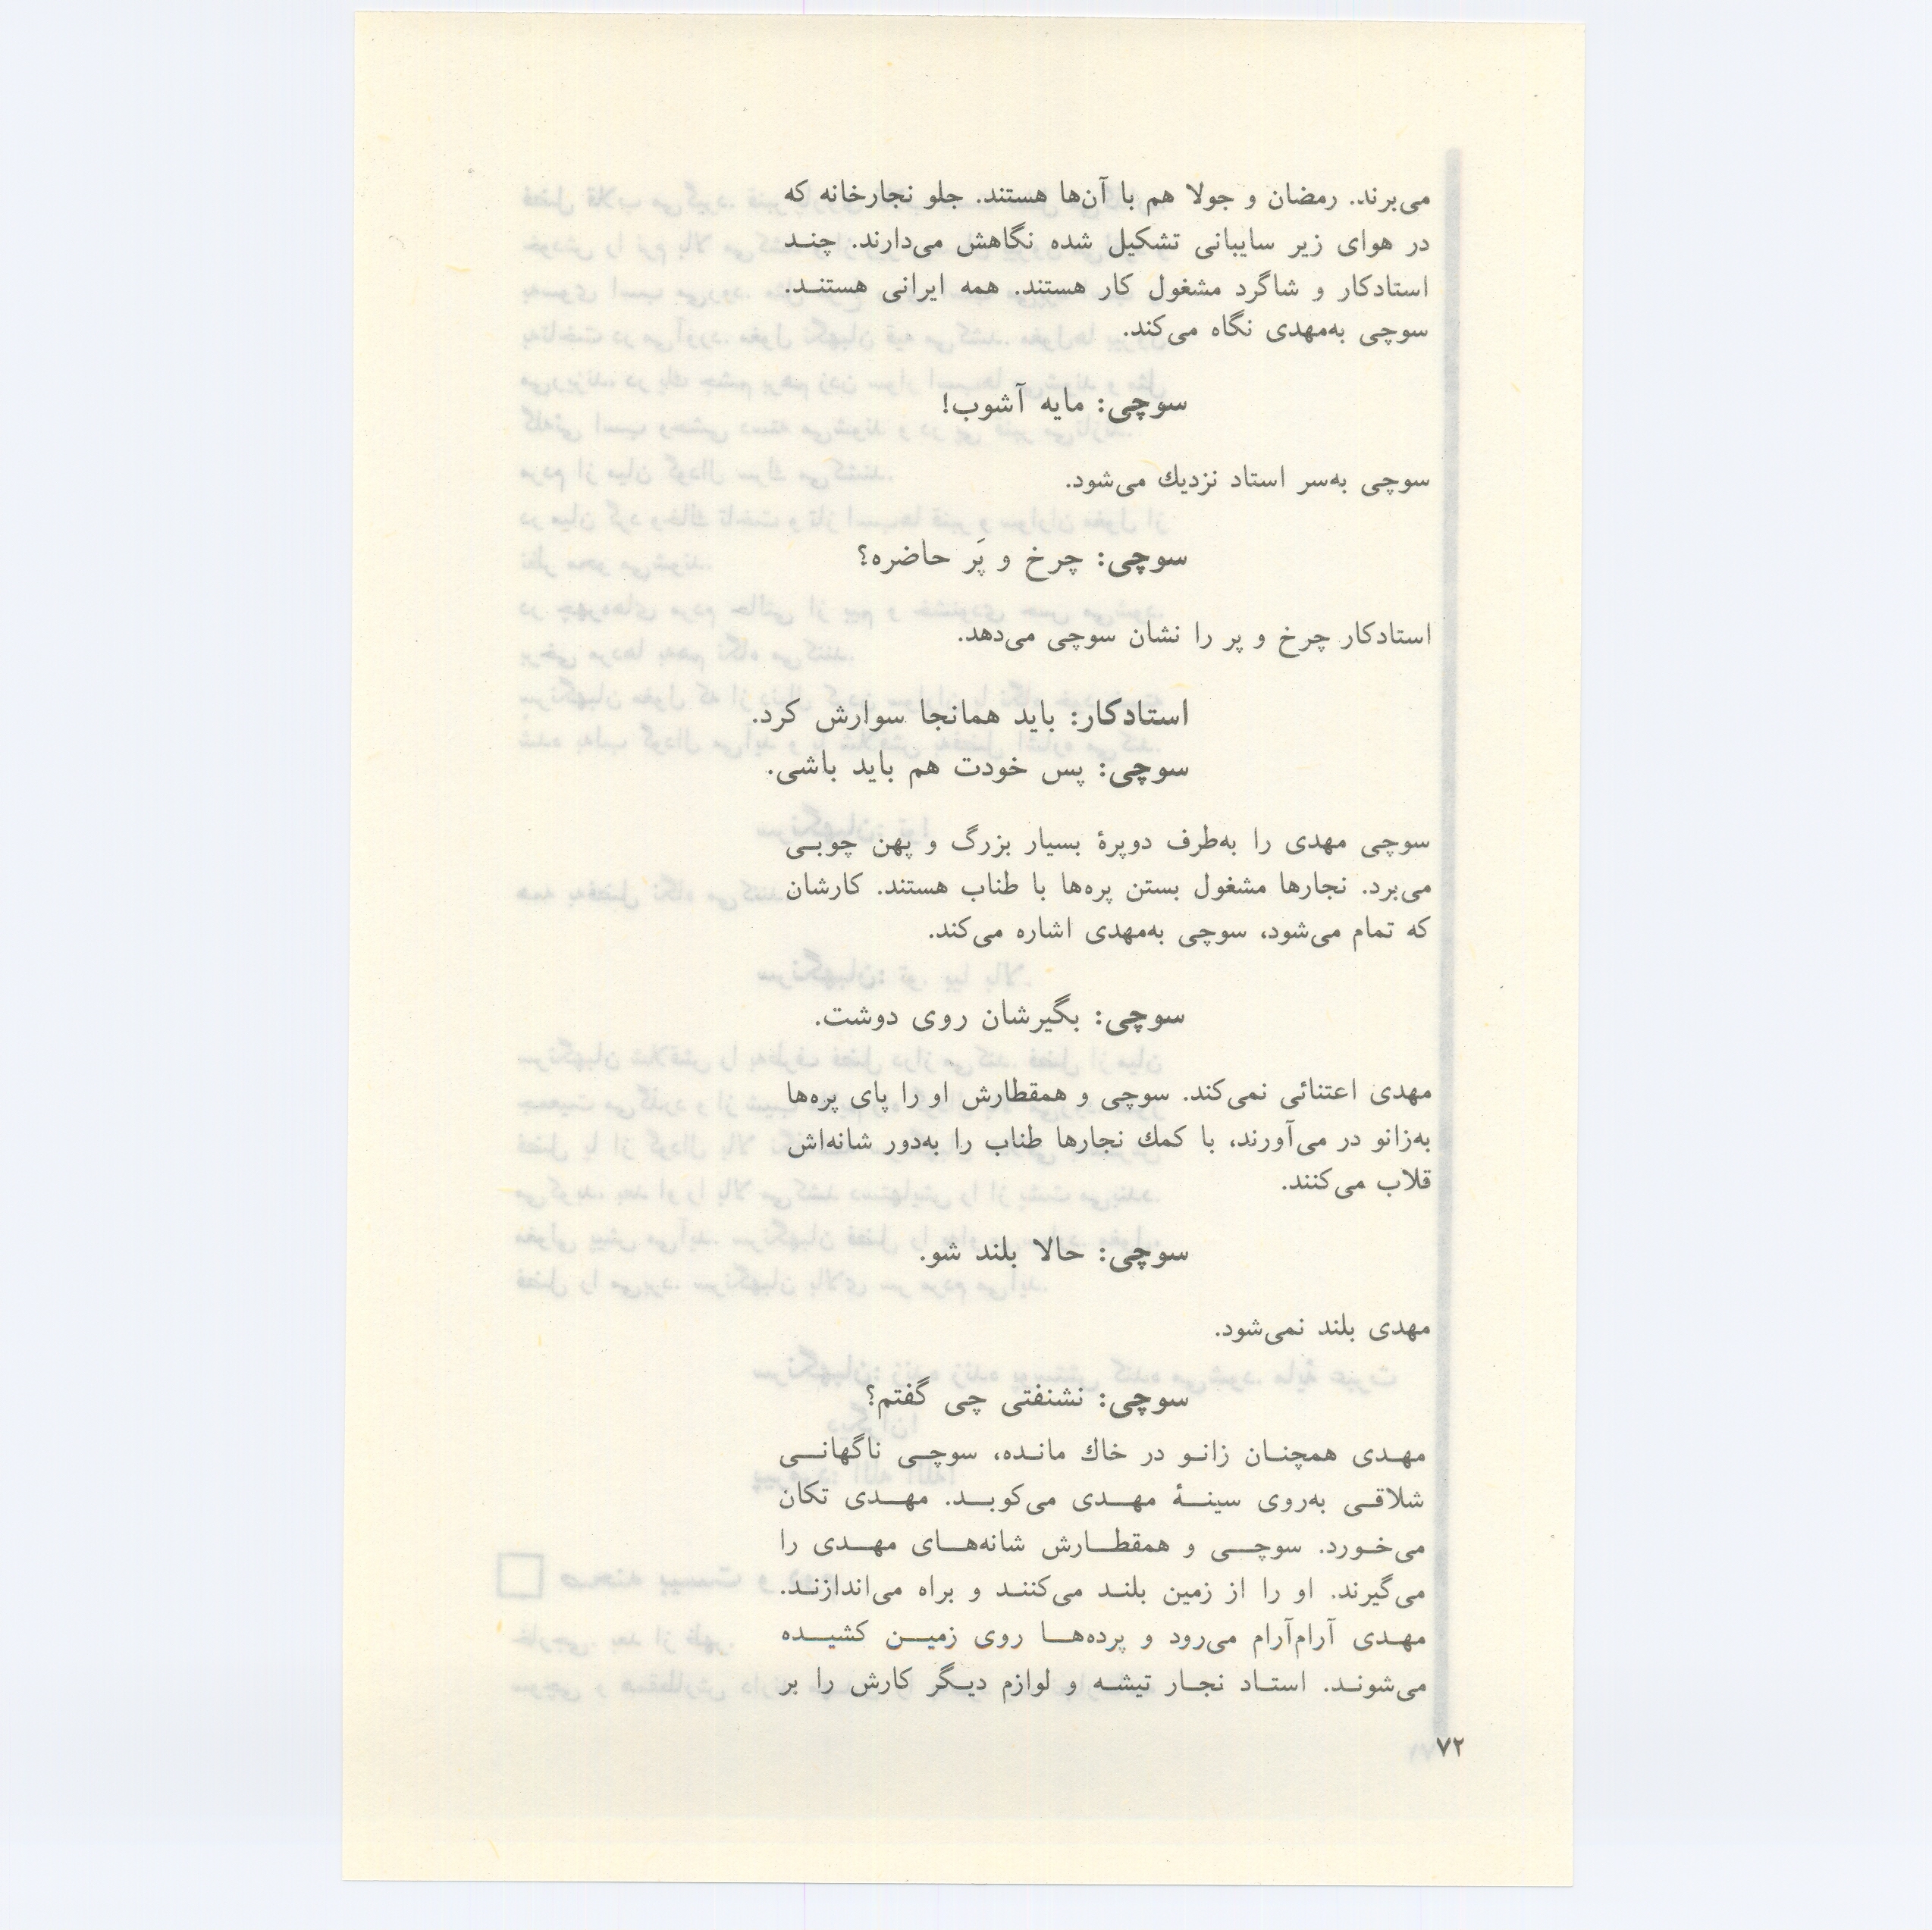 می‌برند. رمضان و جولا هم با آن‌ها هستند. جلو نجارخانه که
در هوای زیر سایبانی تشکیل شده نگاهش می‌دارند. چنـد
استادکار و شاگرد مشغول کار هستند. همه ایرانی هستنـد.
سوچی به‌مهدی نگاه می‌کند.
سوچی: مایه آشوب!
سوچی به‌سر استاد نزدیك می‌شود.
سوچی: چرخ و پَر حاضره؟
استادکار چرخ و پر را نشان سوچی می‌دهد.
استادکار: باید همانجا سوارش کرد.
سوچی: پس خودت هم باید باشی.
سوچی مهدی را به‌طرف دوپرهٔ بسیار بزرگ و پهن چوبـی
می‌برد. نجارها مشغول بستن پره‌ها با طناب هستند. کارشان
که تمام می‌شود، سوچی به‌مهدی اشاره می‌کند.
سوچی: بگیرشان روی دوشت.
مهدی اعتنائی نمی‌کند. سوچی و همقطارش او را پای پره‌ها
به‌زانو در می‌آورند، با کمك نجارها طناب را به‌دور شانه‌اش
قلاب می‌کنند.
سوچی: حالا بلند شو.
مهدی بلند نمی‌شود.
سوچی: نشنفتی چی گفتم؟
مهـدی همچنـان زانـو در خاك مانـده، سوچـی ناگهانـی
شلاقـی به‌روی سینـهٔ مهـدی می‌کوبـد. مهـدی تکان
می‌خـورد. سوچـی و همقطـارش شانه‌هـای مهـدی را
می‌گیرند. او را از زمین بلنـد می‌کننـد و براه می‌اندازنـد.
مهـدی آرام‌آرام می‌رود و پرده‌هـا روی زمیـن کشیـده
می‌شونـد. استـاد نجـار تیشـه و لوازم دیـگر کارش را بر
۷۲